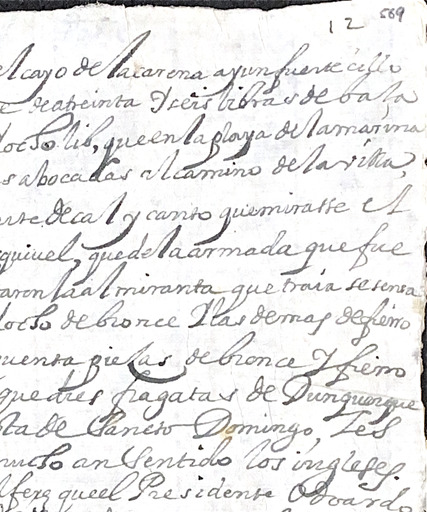 12 569
el cayo de la carena ay un fuerteçillo
de a treinta y ceis libras de bala
docho lib, que en la playa de la marina
s abocadas al camino de la villa,
arte de cal y canto que mirasse el
squiuel, que de la armada que fue
aron la almiranta que traia sesenta
docho de bronce y las demas de fierro
quenta pieças de bronce y fierro
que dies fragatas de Dunquerque
sta de Sancto Domingo, Les
mucho an sentido los ingleses.
lferz que el Presidente Odoardo